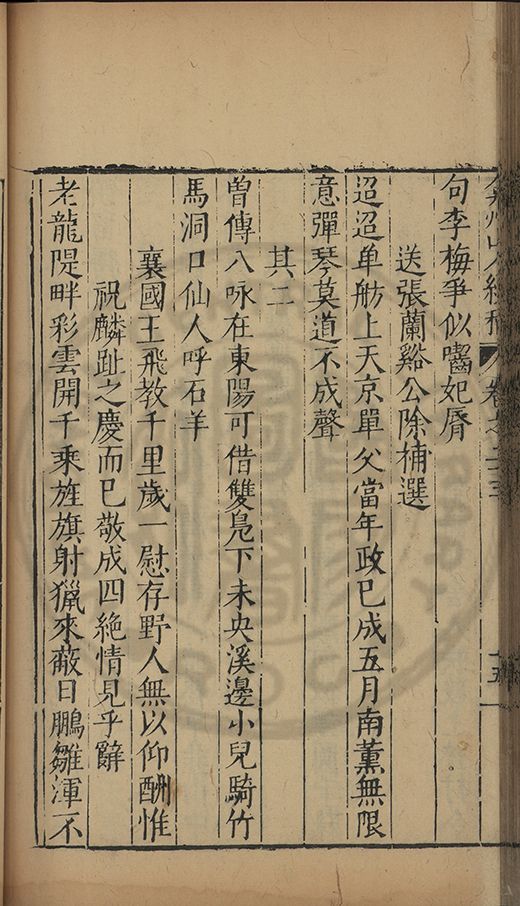 弇州山人續稿 卷之二十三 十五
句李梅爭似囓妃脣
送張蘭谿公除補選
迢迢单舫上天京單父當年政已成五月南薰無限
意彈琴莫道不成聲
其二
曾傳八咏在東陽可借雙鳧下未央溪邊小兒騎竹
馬洞口仙人呼石羊
襄國王飛教千里歲一慰存野人無以仰酬惟
祝麟趾之慶而已敬成四絕情見乎辭
老龍隄畔彩雲開千乘旌旗射獵來蔽日鵬雛渾不